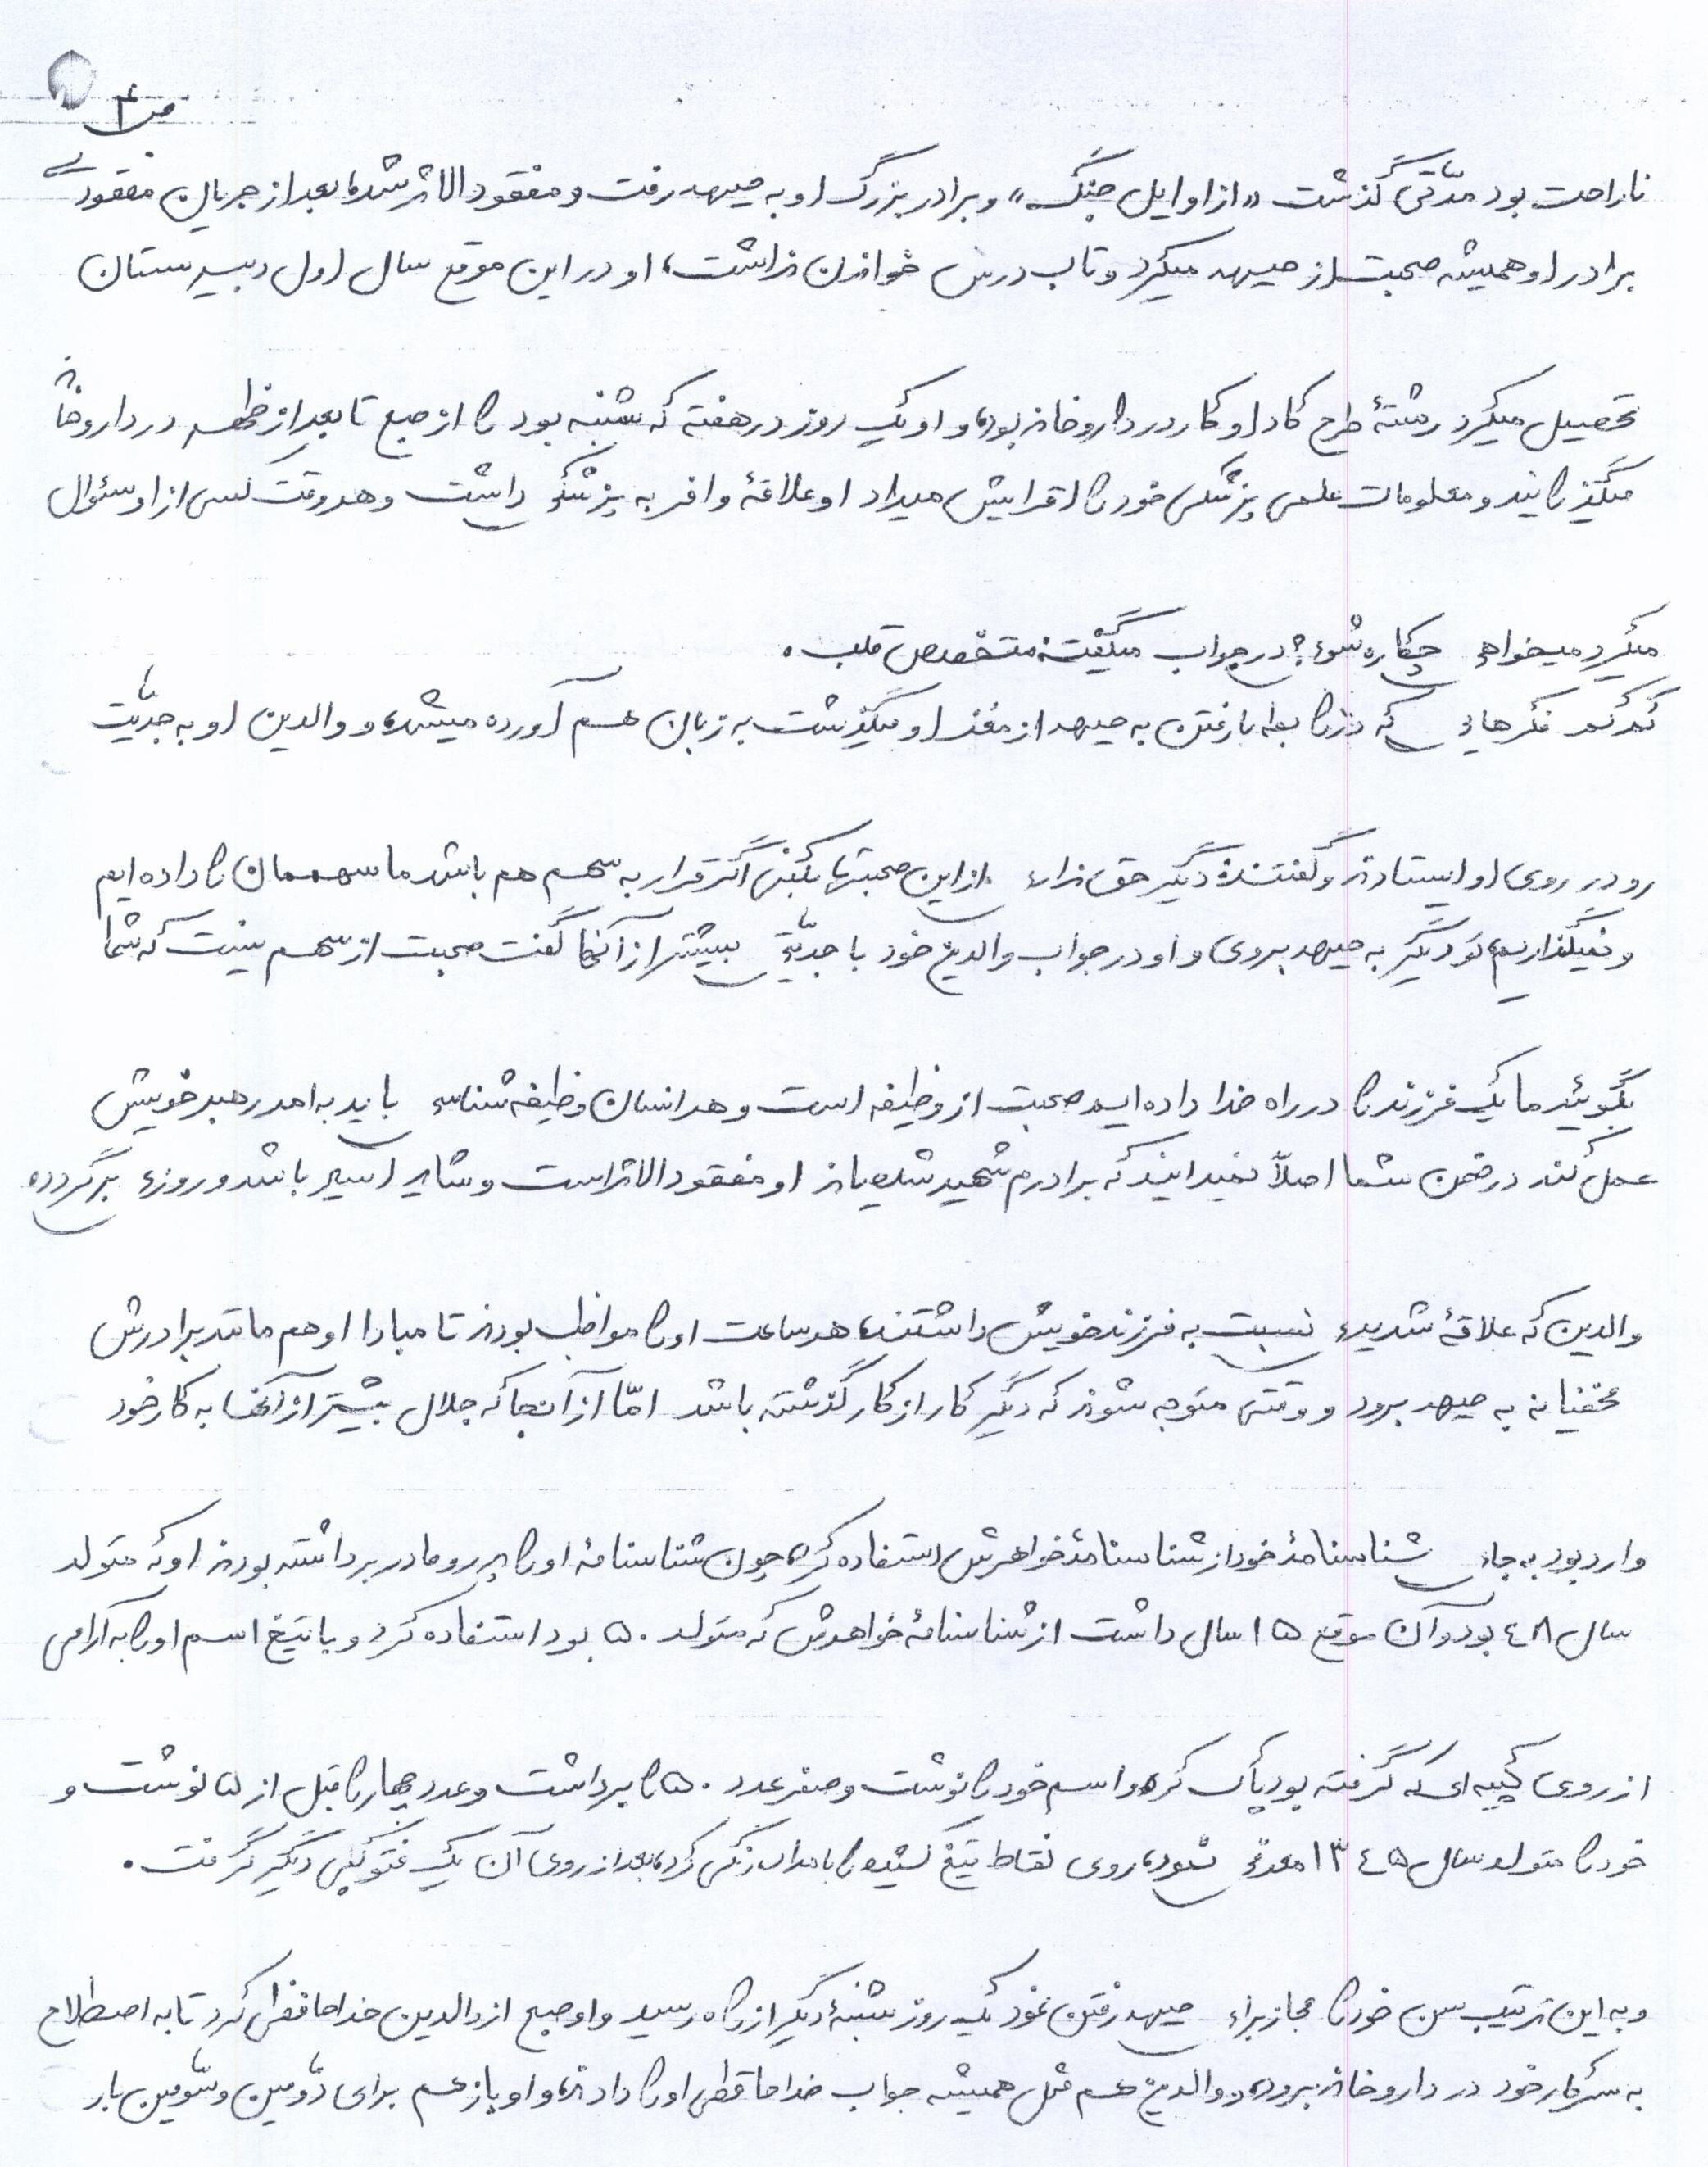 ص ۴
ناراحت بود مدّتی گذشت «از اوایل جنگ» و برادر بزرگ او به جبهه رفت و مفقودالاثر شد، بعد از جریان مفقودی
برادر او همیشه صحبت از جبهه میکرد و تاب درس خواندن نداشت، او در این موقع سال اول دبیرستان
تحصیل میکرد رشتهٔ طرح کاد او کار در داروخانه بود، و او یک روز در هفته که شنبه بود را از صبح تا بعد از ظهر در داروخانه
میگذرانید و معلومات علمی پزشکی خود را افزایش میداد او علاقهٔ وافر به پزشکی داشت و هر وقت کسی از او سئوال
میکرد میخواهی چکاره شوی؟ در جواب میگفت: متخصص قلب.
کم کم فکرهایی که در رابطه با رفتن به جبهه از مغز او میگذشت به زبان هم آورده میشد، و والدین او به جدیّت
رو در روی او ایستادند و گفتند: دیگر حق نداری از این صحبتها بکنی اگر قرار به سهم هم باشد ما سهممان را داده ایم
و نمیگذاریم تو دیگر به جبهه بروی و او در جواب والدین خود با جدیّتی بیشتر از آنها گفت صحبت از سهم نیست که شما
بگوئید ما یک فرزند را در راه خدا داده ایم صحبت از وظیفه است و هر انسان وظیفه شناسی باید به امر رهبر خویش
عمل کند در ضمن شما اصلاً نمیدانید که برادرم شهید شده یا نه او مفقودالاثر است و شاید اسیر باشد و روزی برگردد،
والدین که علاقهٔ شدیدی نسبت به فرزند خویش داشتند، هر ساعت او را مواظب بودند تا مبادا او هم مانند برادرش
مخفیانه به جبهه برود و وقتی متوجه شوند که دیگر کار از کار گذشته باشد امّا از آنجا که جلال بیشتر از آنها به کار خود
وارد بود به جای شناسنامهٔ خود از شناسنامهٔ خواهرش استفاده کرد، چون شناسنامهٔ او را پدر و مادر برداشته بودند او که متولد
سال ٤٨ بود و آن موقع ۱۵ سال داشت از شناسنامهٔ خواهرش که متولد ۵۰ بود استفاده کرد و با تیغ اسم او را به آرامی
از روی کپیه ای که گرفته بود پاک کرد، و اسم خود را نوشت و صفر عدد ۵۰ را برداشت و عدد چهار را قبل از ۵ نوشت و
خود را متولد سال ۱۳٤۵ معرفی نمود، روی نقاط تیغ کشیده را با مداد رنگی کرد، بعد از روی آن یک فتوکپی دیگر گرفت.
و به این ترتیب سن خود را مجاز برای جبهه رفتن نمود یک روز شنبهٔ دیگر از راه رسید و او صبح از والدین خداحافظی کرد تا به اصطلاح
به سر کار خود در داروخانه برود، و والدین هم مثل همیشه جواب خداحافظی او را دادند، و او باز هم برای دوّمین و سّومین بار